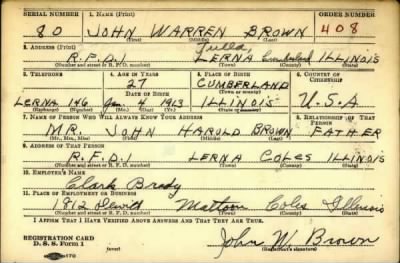 SERIAL NUMBER 1. NAME (Print) ORDER NUMBER
80 JOHN WARREN BROWN 408
(First) (Middle) (Last)
2. ADDRESS (Print)
R.F.D.1 LERNA Cumberland ILLINOIS
(Number and street or R. F. D. number) (Town) (County) (State)
3. TELEPHONE 4. AGE IN YEARS 5. PLACE OF BIRTH 6. COUNTRY OF CITIZENSHIP
27 CUMBERLAND
DATE OF BIRTH (Town or county)
LERNA 146 Jan. 4 1913 ILLINOIS U.S.A
(Exchange) (Number) (Mo.) (Day) (Yr.) (State or country)
7. NAME OF PERSON WHO WILL ALWAYS KNOW YOUR ADDRESS 8. RELATIONSHIP OF THAT PERSON
MR. JOHN HAROLD BROWN FATHER
(Mr., Mrs., Miss) (First) (Middle) (Last)
9. ADDRESS OF THAT PERSON
R.F.D.1 LERNA COLES ILLINOIS
(Number and street or R. F. D. number) (Town) (County) (State)
10. EMPLOYER'S NAME
Clark Brady
11. PLACE OF EMPLOYMENT OR BUSINESS
1812 Dewitt Mattoon Coles Illinois
(Number and street or R. F. D. number) (Town) (County) (State)
I AFFIRM THAT I HAVE VERIFIED ABOVE ANSWERS AND THAT THEY ARE TRUE.
REGISTRATION CARD
D. S. S. Form 1 (over) John W. Brown
(Registrant's signature)